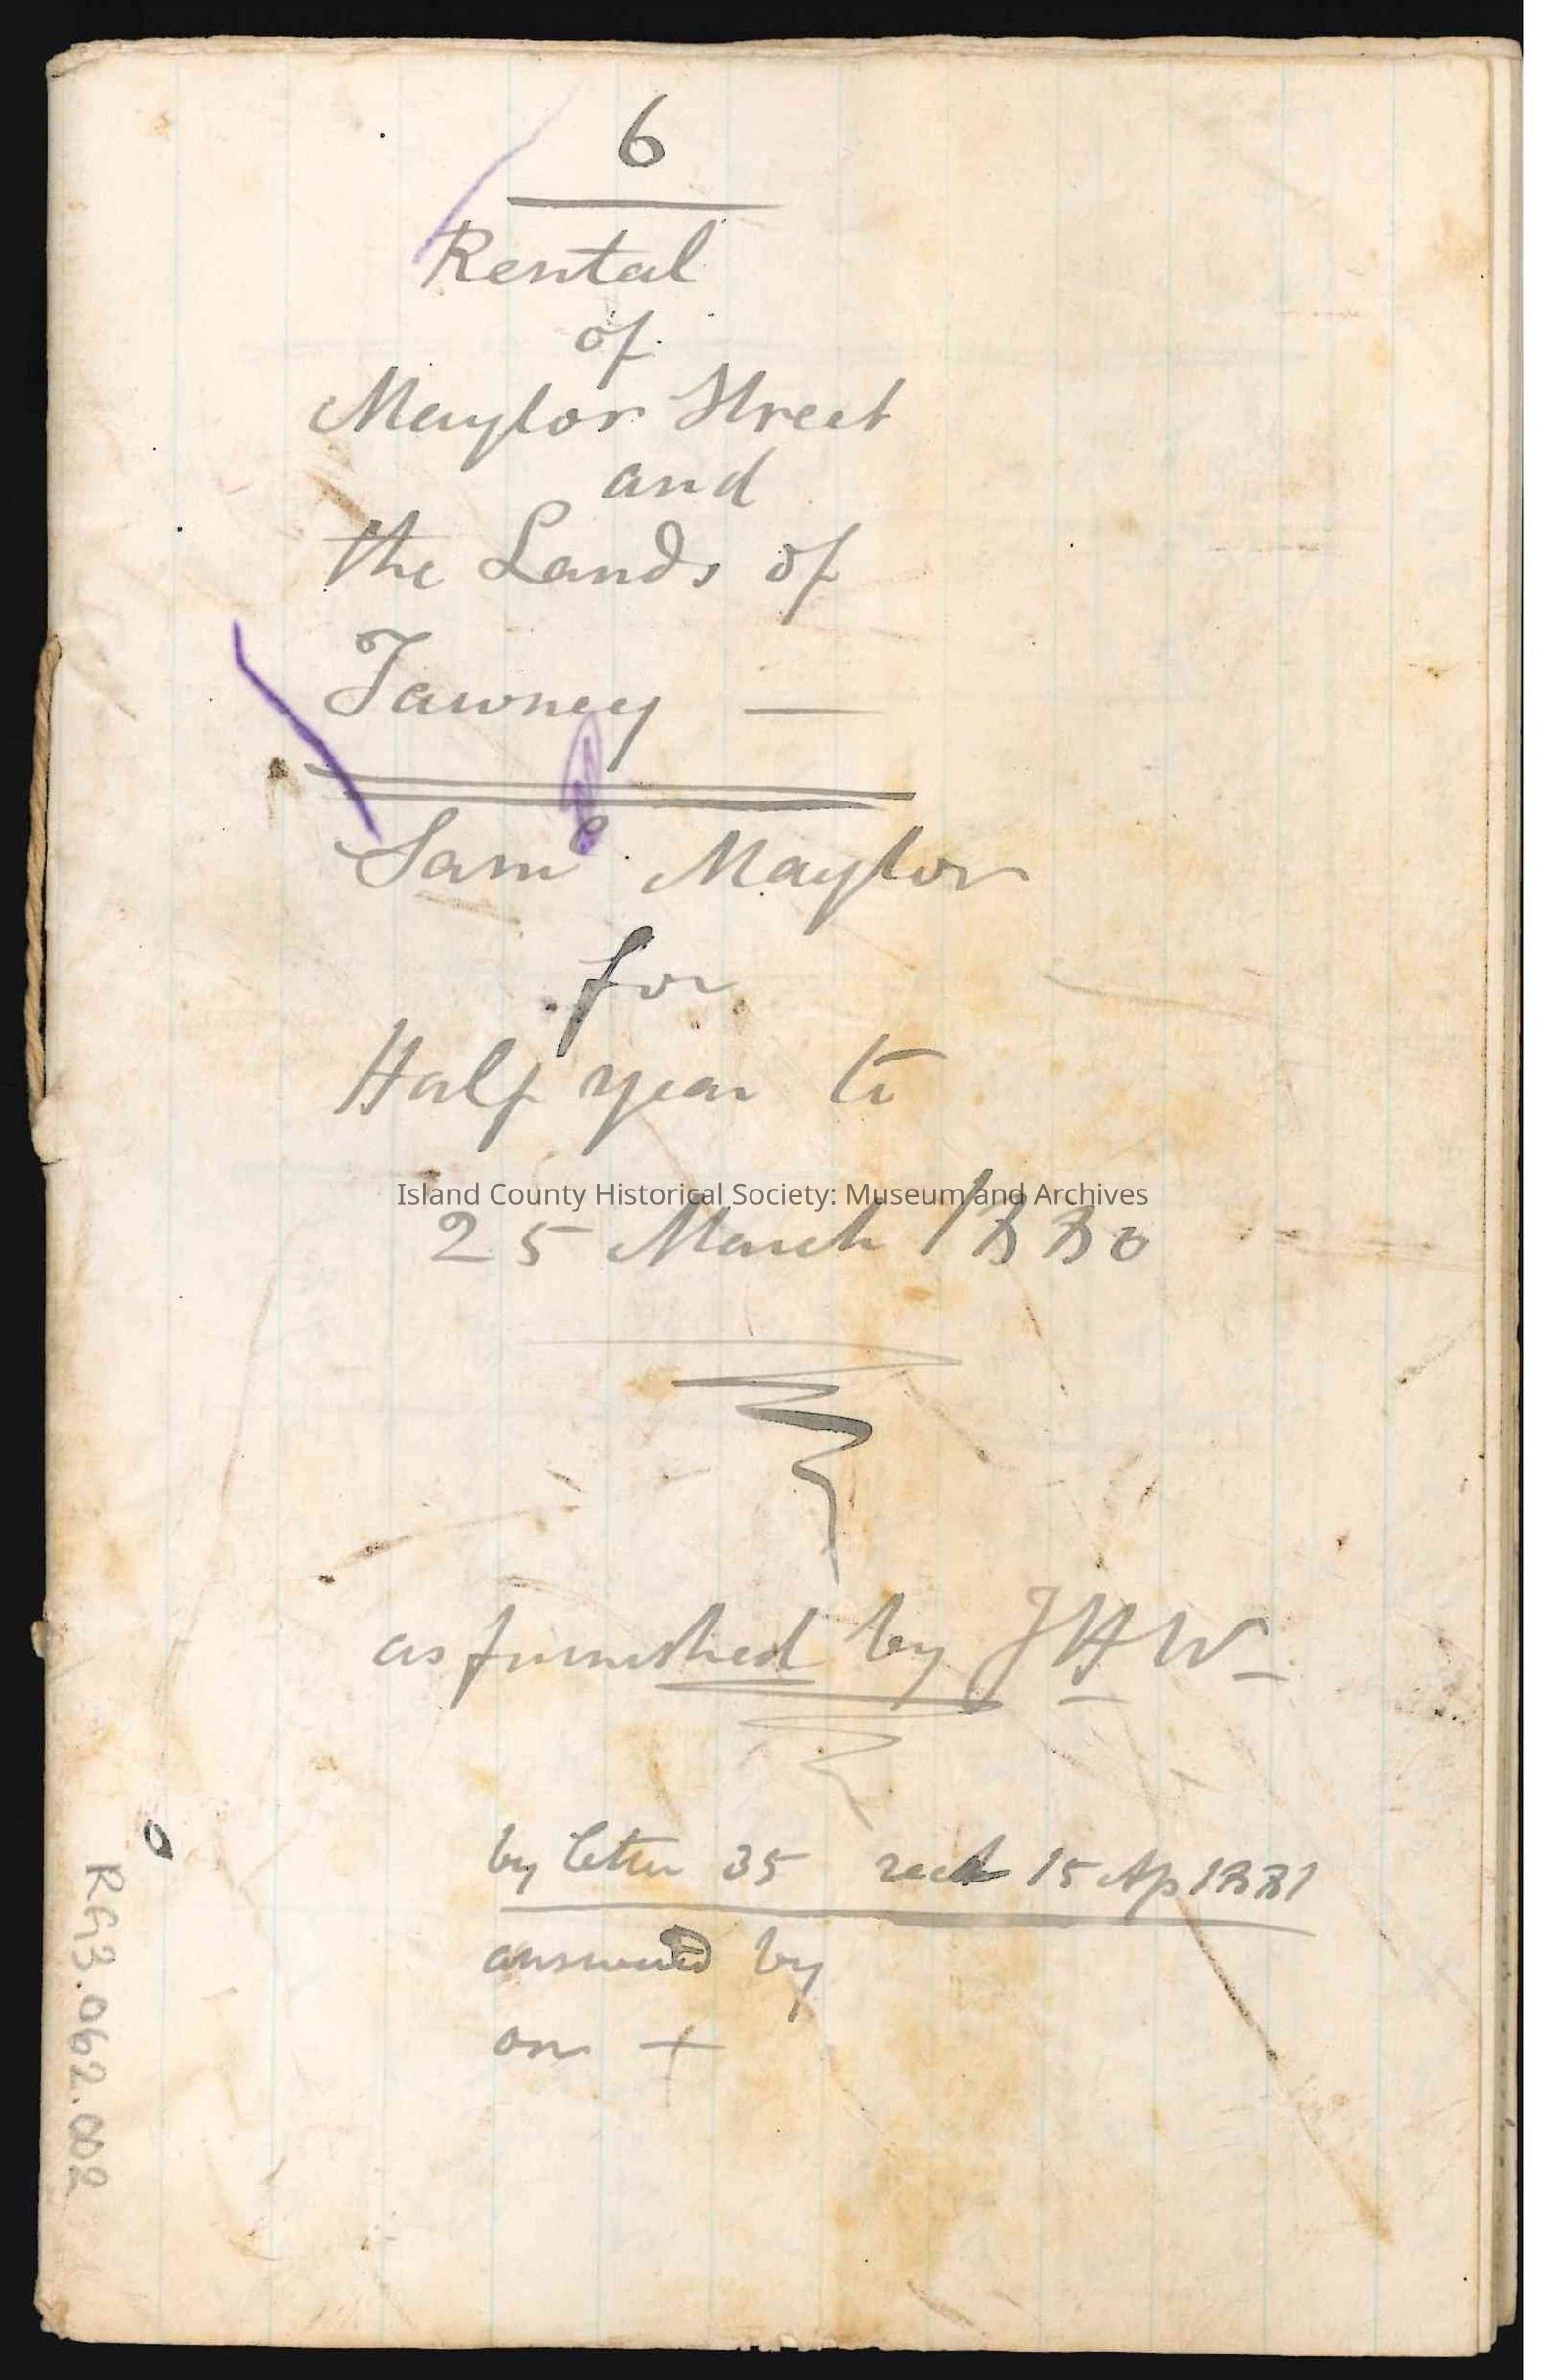 6
Rental
of
Maylor Street
and
the Lands of
Tawney —
Saml Maylor
for
Half year to
Island County Historical Society: Museum and Archives
25 March 1880
as furnished by JHW
by letter 35 recd 15 Ap 1881
answered by
on +
RG3.062.002